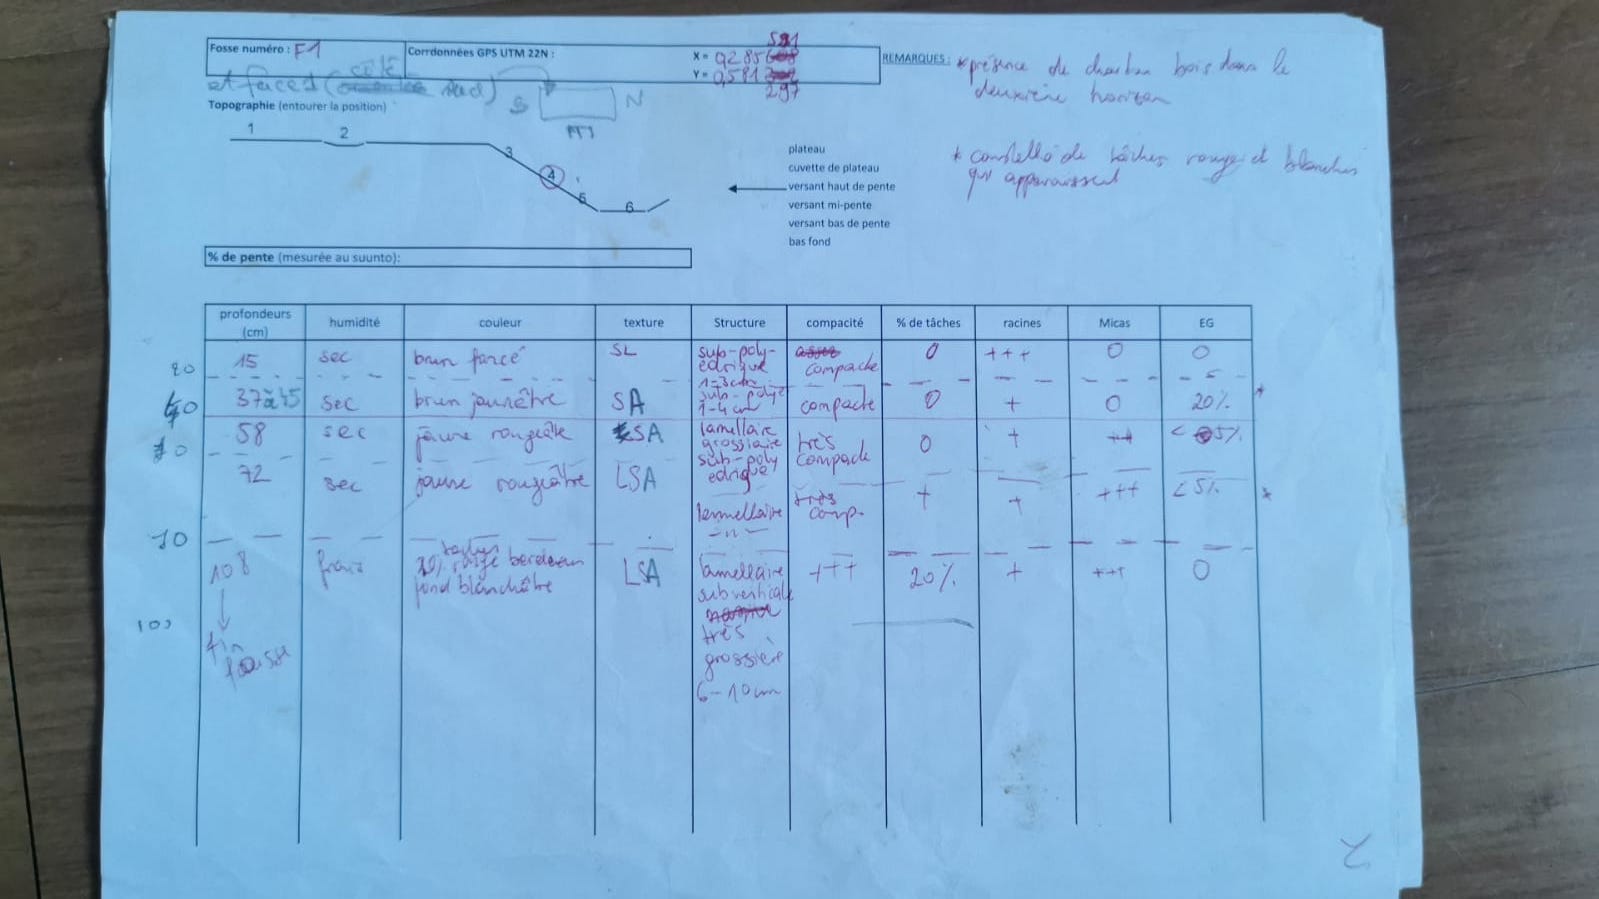 Fosse numéro : F1
Corrdonnées GPS UTM 22N :
591
X = 0285
Y = 0581
297
et face 1 ( côté sud)
S N
REMARQUES : * présence de charbon bois dans le
deuxième horizon
* constellé de tâches rouge et blanches
qui apparaissent
Topographie (entourer la position)
1 2 3 4 5 6
plateau
cuvette de plateau
versant haut de pente
versant mi-pente
versant bas de pente
bas fond
% de pente (mesurée au suunto):
profondeurs (cm) humidité couleur texture Structure compacité % de tâches racines Micas EG
20 15 sec brun foncé SL sub-poly-edrique 1-3cm compacte 0 +++ 0 0
40 37à45 sec brun jaunâtre SA sub-polye 1-4cm compacte 0 + 0 20% *
58 sec jaune rougeâtre SA lamellaire grossiaire très compacte 0 + ++ < 5%
72 sec jaune rougeâtre LSA sub-poly edrique lammellaire comp. + + +++ <5% *
108 frais 20% rouge bordeaux fond blanchâtre LSA lamellaire subverticale très grossière 6-10cm +++ 20% + +++ 0
100
fin fausse
2